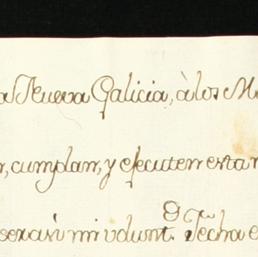 a Nueva Galicia, à los M
r, cumplan, y efecuten esta
ser asi mi volunt.ᵈ Fecha e